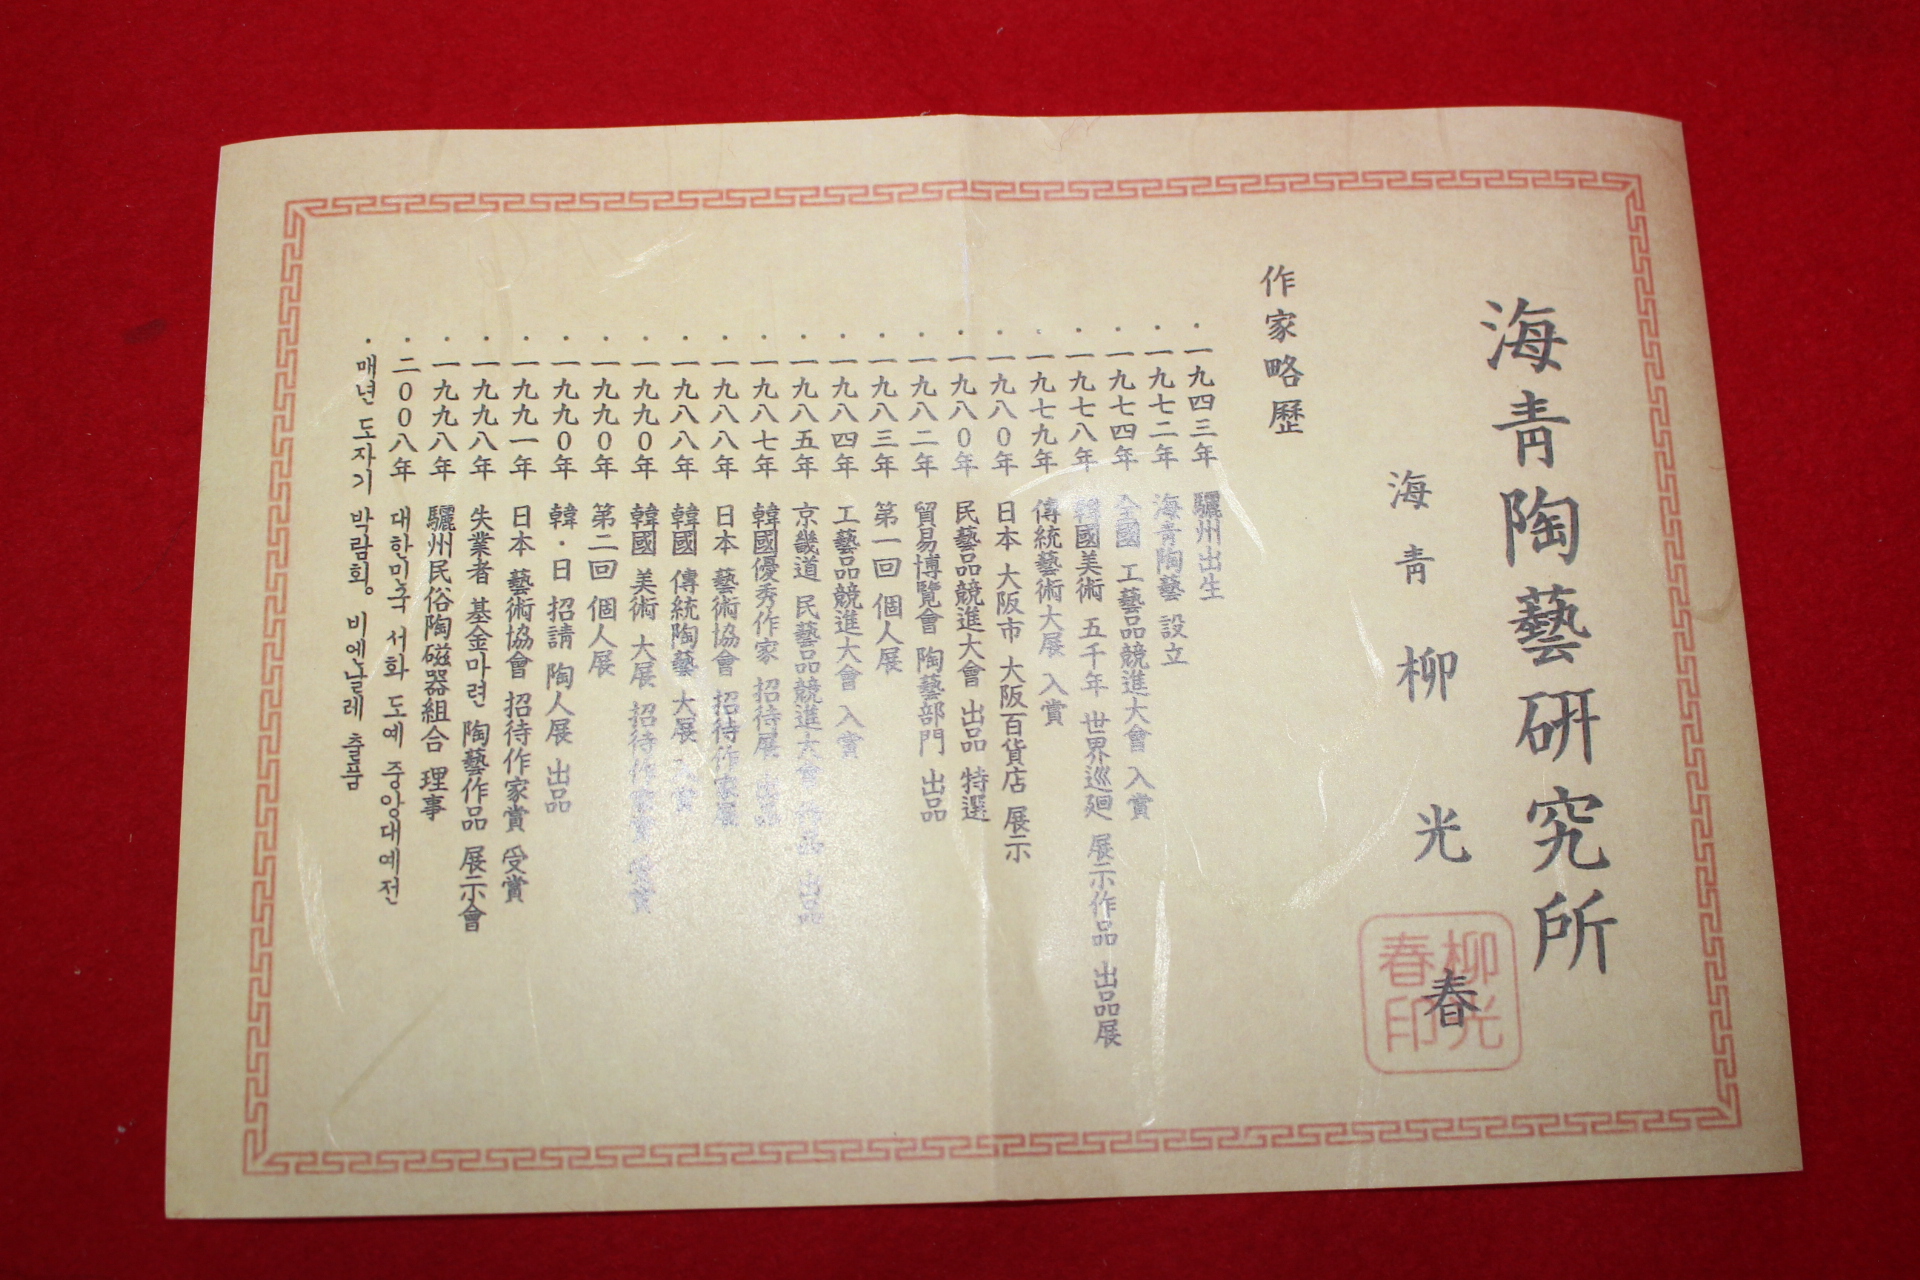 海靑陶藝硏究所
海靑 柳光春
柳光春印
作家略歷
· 一九四三年 驪州出生
· 一九七二年 海靑陶藝 設立
· 一九七四年 全國 工藝品競進大會 入賞
· 一九七八年 韓國美術 五千年 世界巡廻 展示作品 出品展
· 一九七九年 傳統藝術大展 入賞
· 一九八0年 日本 大阪市 大阪百貨店 展示
· 一九八0年 民藝品競進大會 出品 特選
· 一九八二年 貿易博覽會 陶藝部門 出品
· 一九八三年 第一回 個人展
· 一九八四年 工藝品競進大會 入賞
· 一九八五年 京畿道 民藝品競進大會 作品 出品
· 一九八七年 韓國優秀作家 招待展 出品
· 一九八八年 日本 藝術協會 招待作家展
· 一九八八年 韓國 傳統陶藝 大展 入賞
· 一九九0年 韓國 美術 大展 招待作家賞 受賞
· 一九九0年 第二回 個人展
· 一九九0年 韓·日 招請 陶人展 出品
· 一九九一年 日本 藝術協會 招待作家賞 受賞
· 一九九八年 失業者 基金마련 陶藝作品 展示會
· 一九九八年 驪州民俗陶磁器組合 理事
· 二00八年 대한민국 서화 도예 중앙대예전
· 매년 도자기 박람회。비엔날레 출품